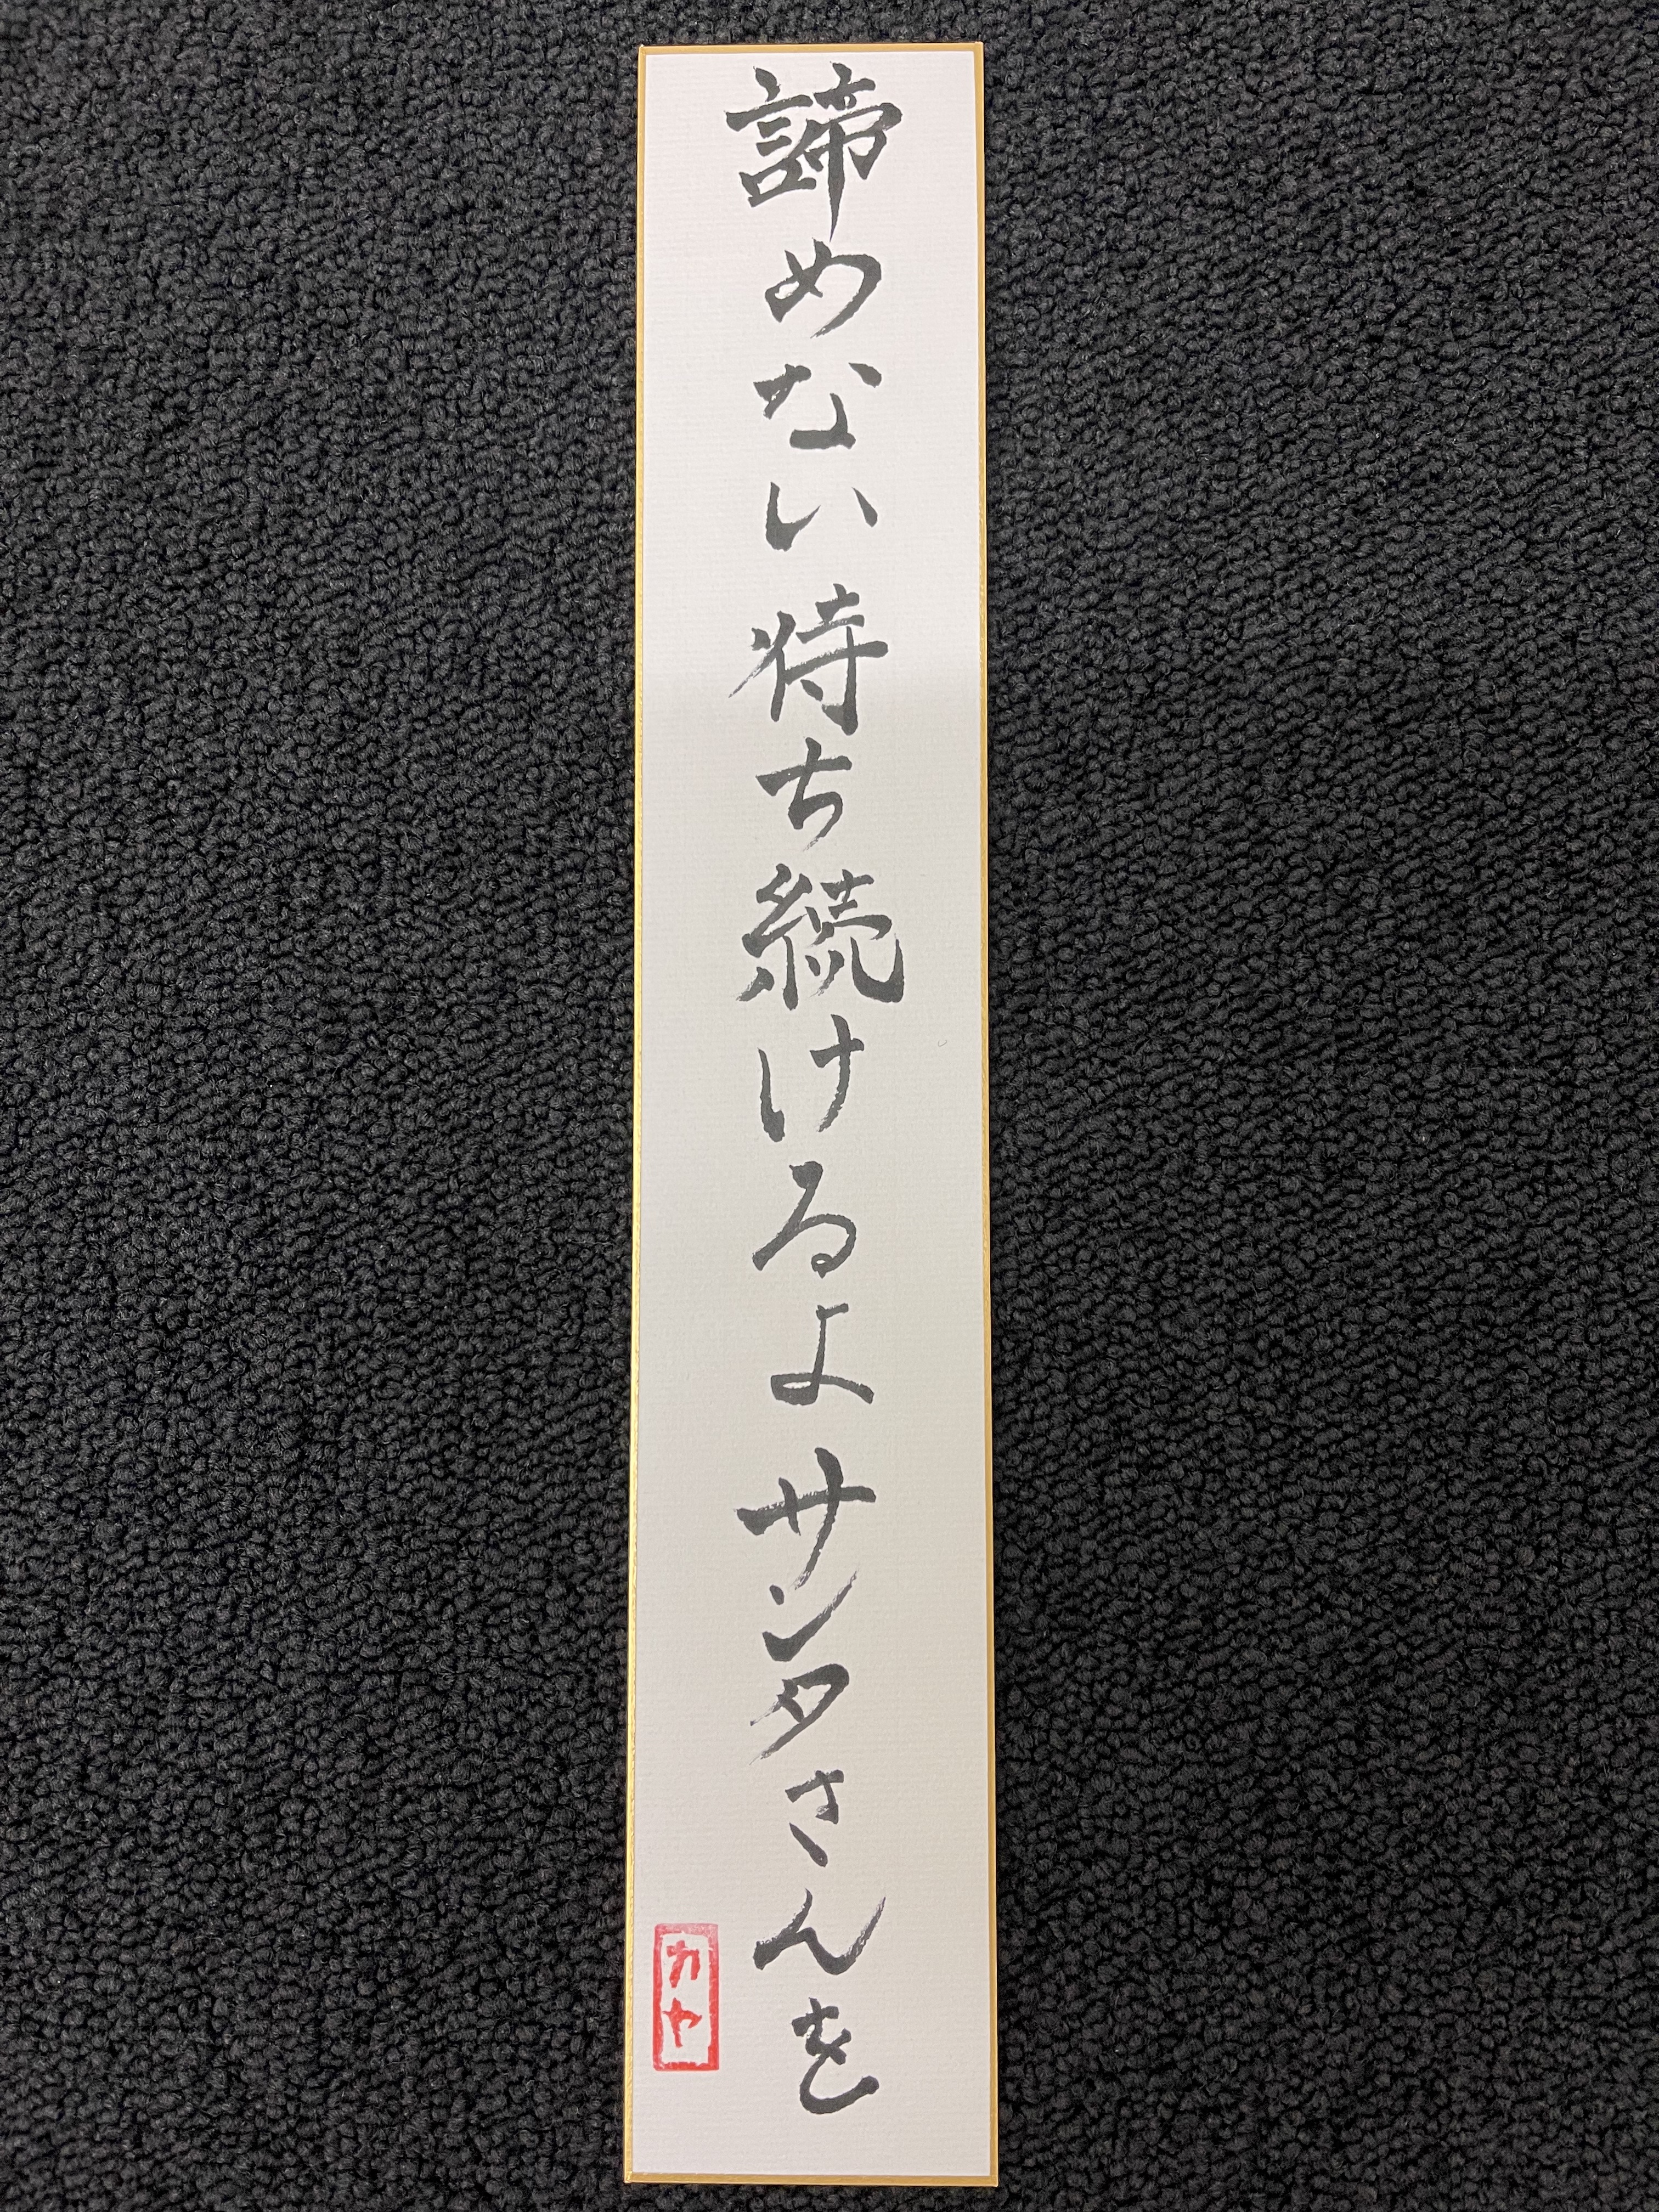 諦めない待ち続けるよサンタさんを
カヤ